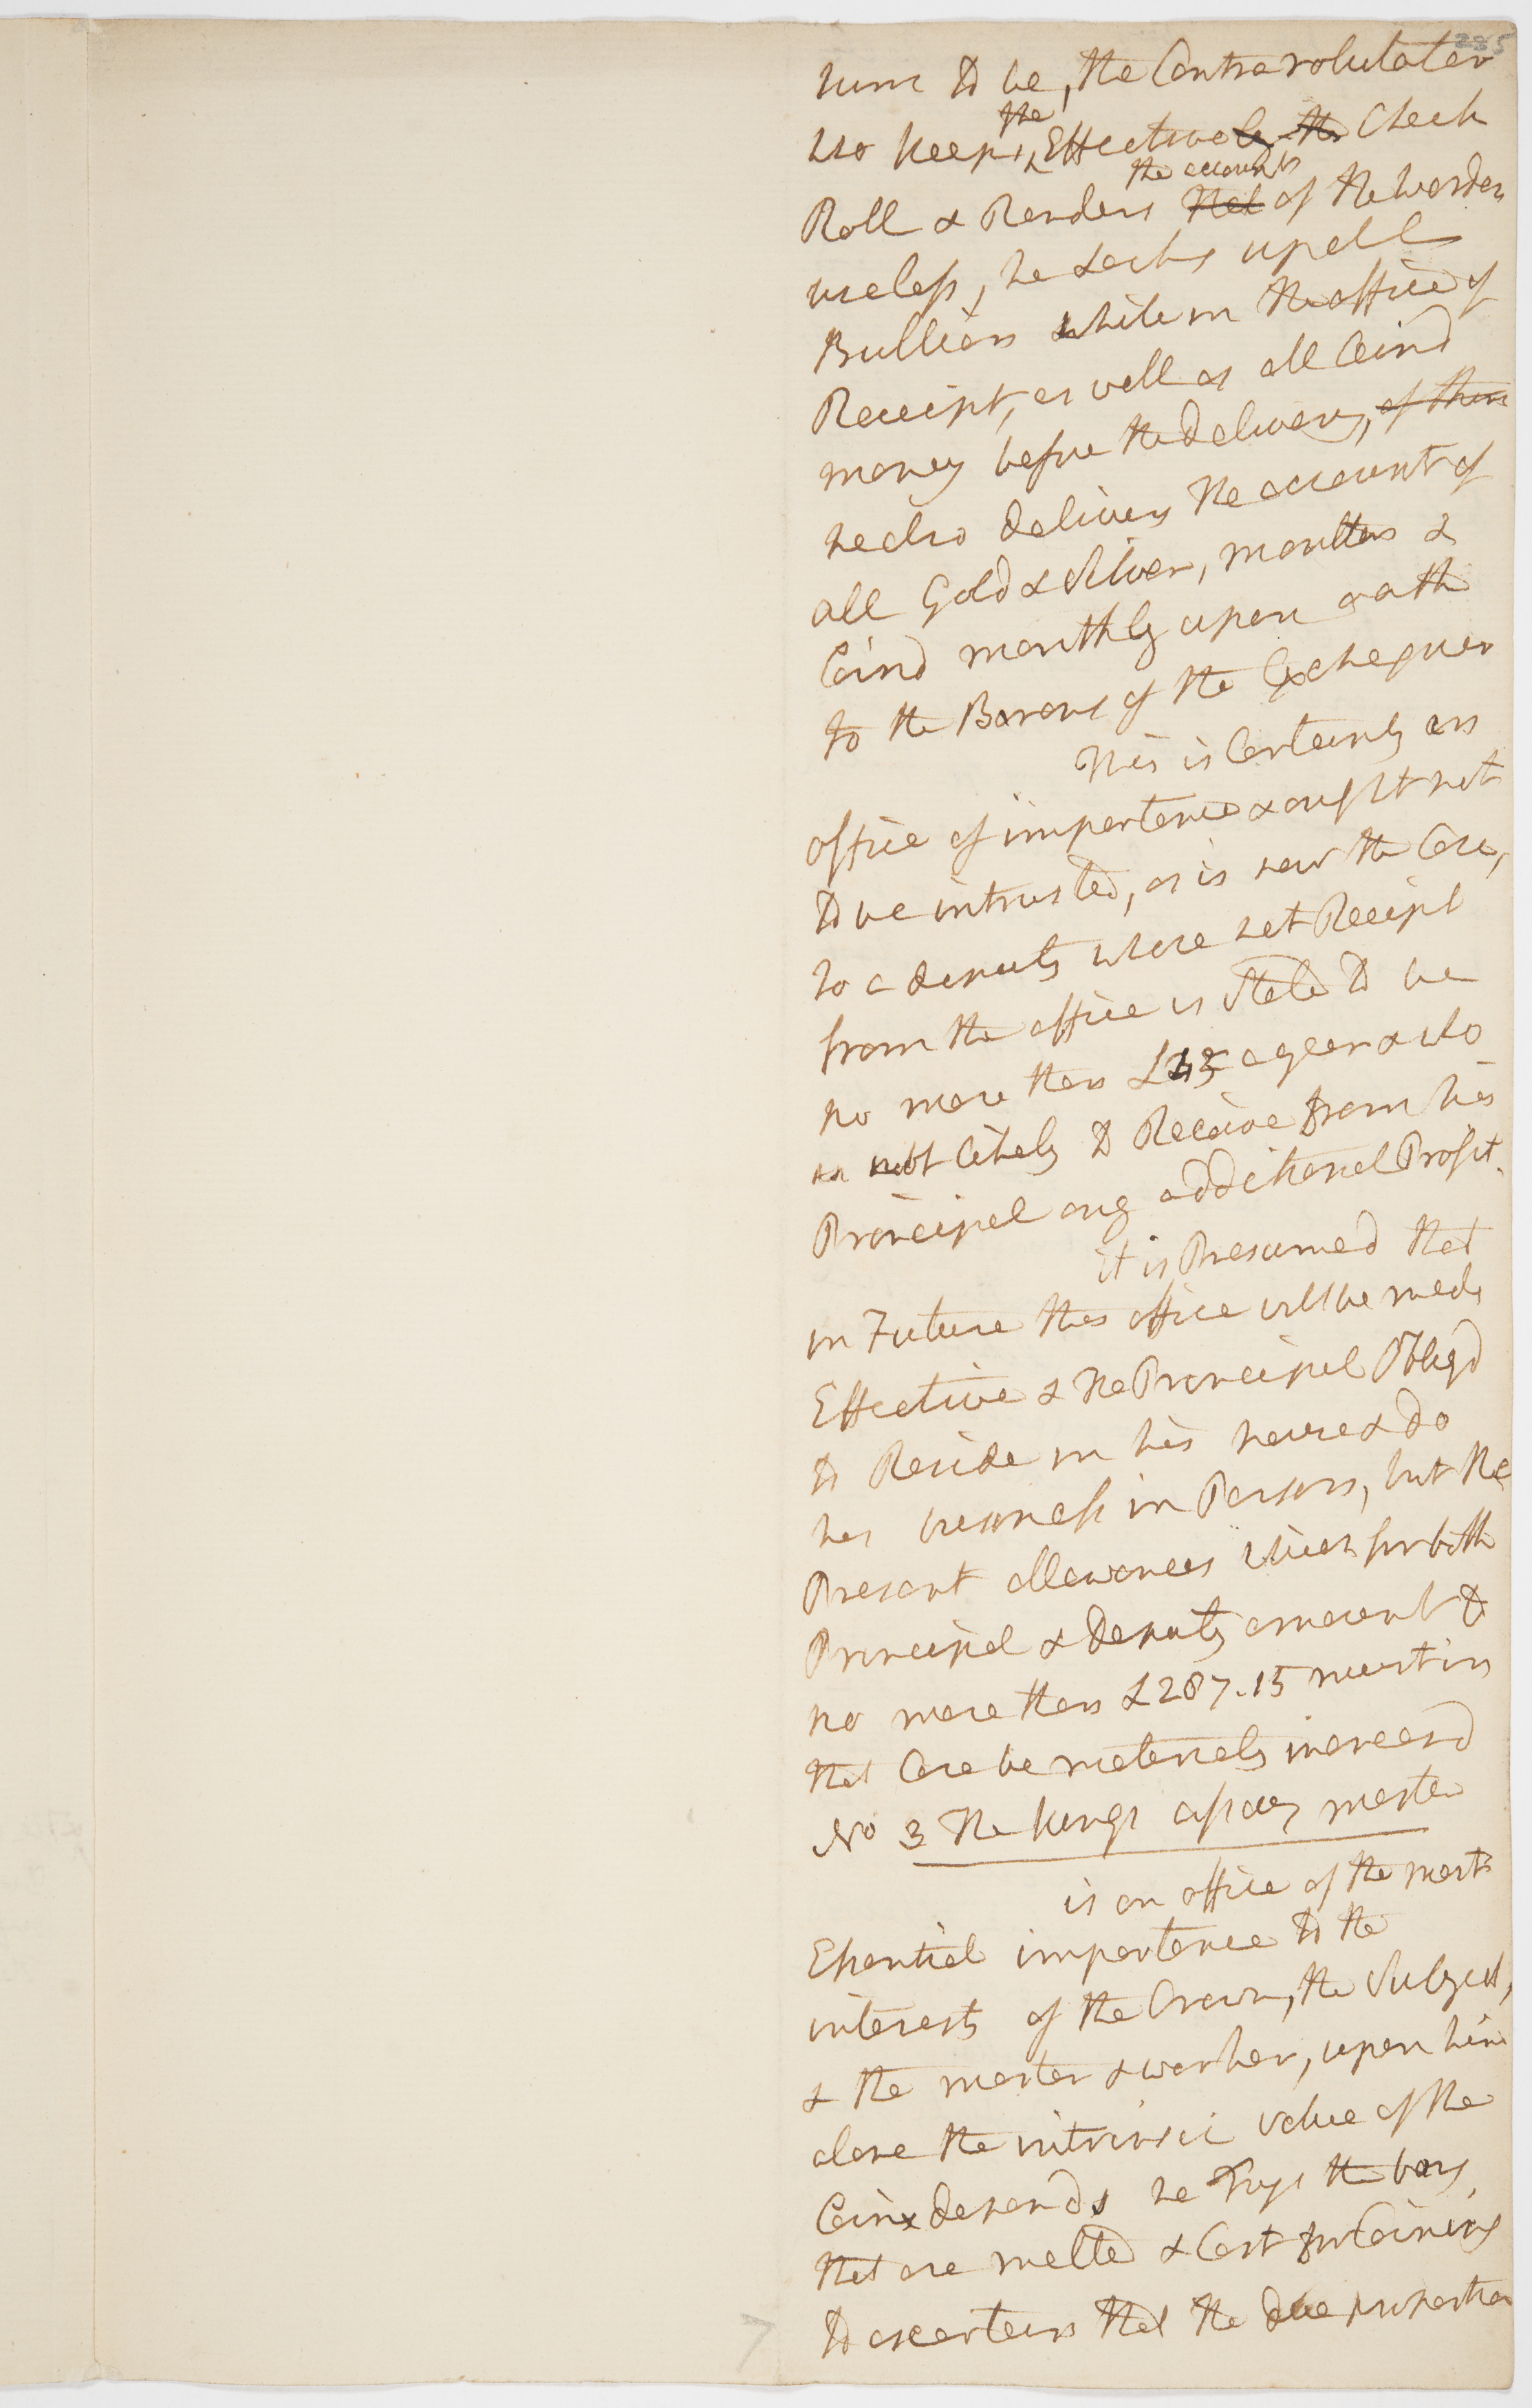 285
him to be, the Contrarotulator
who keeps the Effective ly the Check
Roll & Renders that the accounts of the warden
useless, he Locks up all
Bullion while in the office of
Receipt, as well as all Coind
money before the delivery, of them
he also delivers the account of
all Gold & Silver, moulten &
Coind monthly upon oath
to the Barons of the Exchequer
This is Certainly an
office of importance & ought not
to be intrusted, as is now the Case,
to a deputy whose net Receipt
from the office is Stated to be
no more than a year & who
is not likely to Receive from his
Principal any additional Profit.
it is Presumed that
in Future this office will be made
Effective & the Principal Obligd
to Reside in his house & do
his business in Person, but the
Present allowances which for both
Principal & Deputy amount to
no more than £287.15 must in
that Case be materialy increasd
No 3 The kings assay master
is an office of the most
Essential importance to the
interests of the Crown, the Subject,
& the master & worker, upon him
alone the intrinsic value of the
Coin depends he Trys the bars
that are melted & Cast for Coining
to ascertain that the due proportion
7